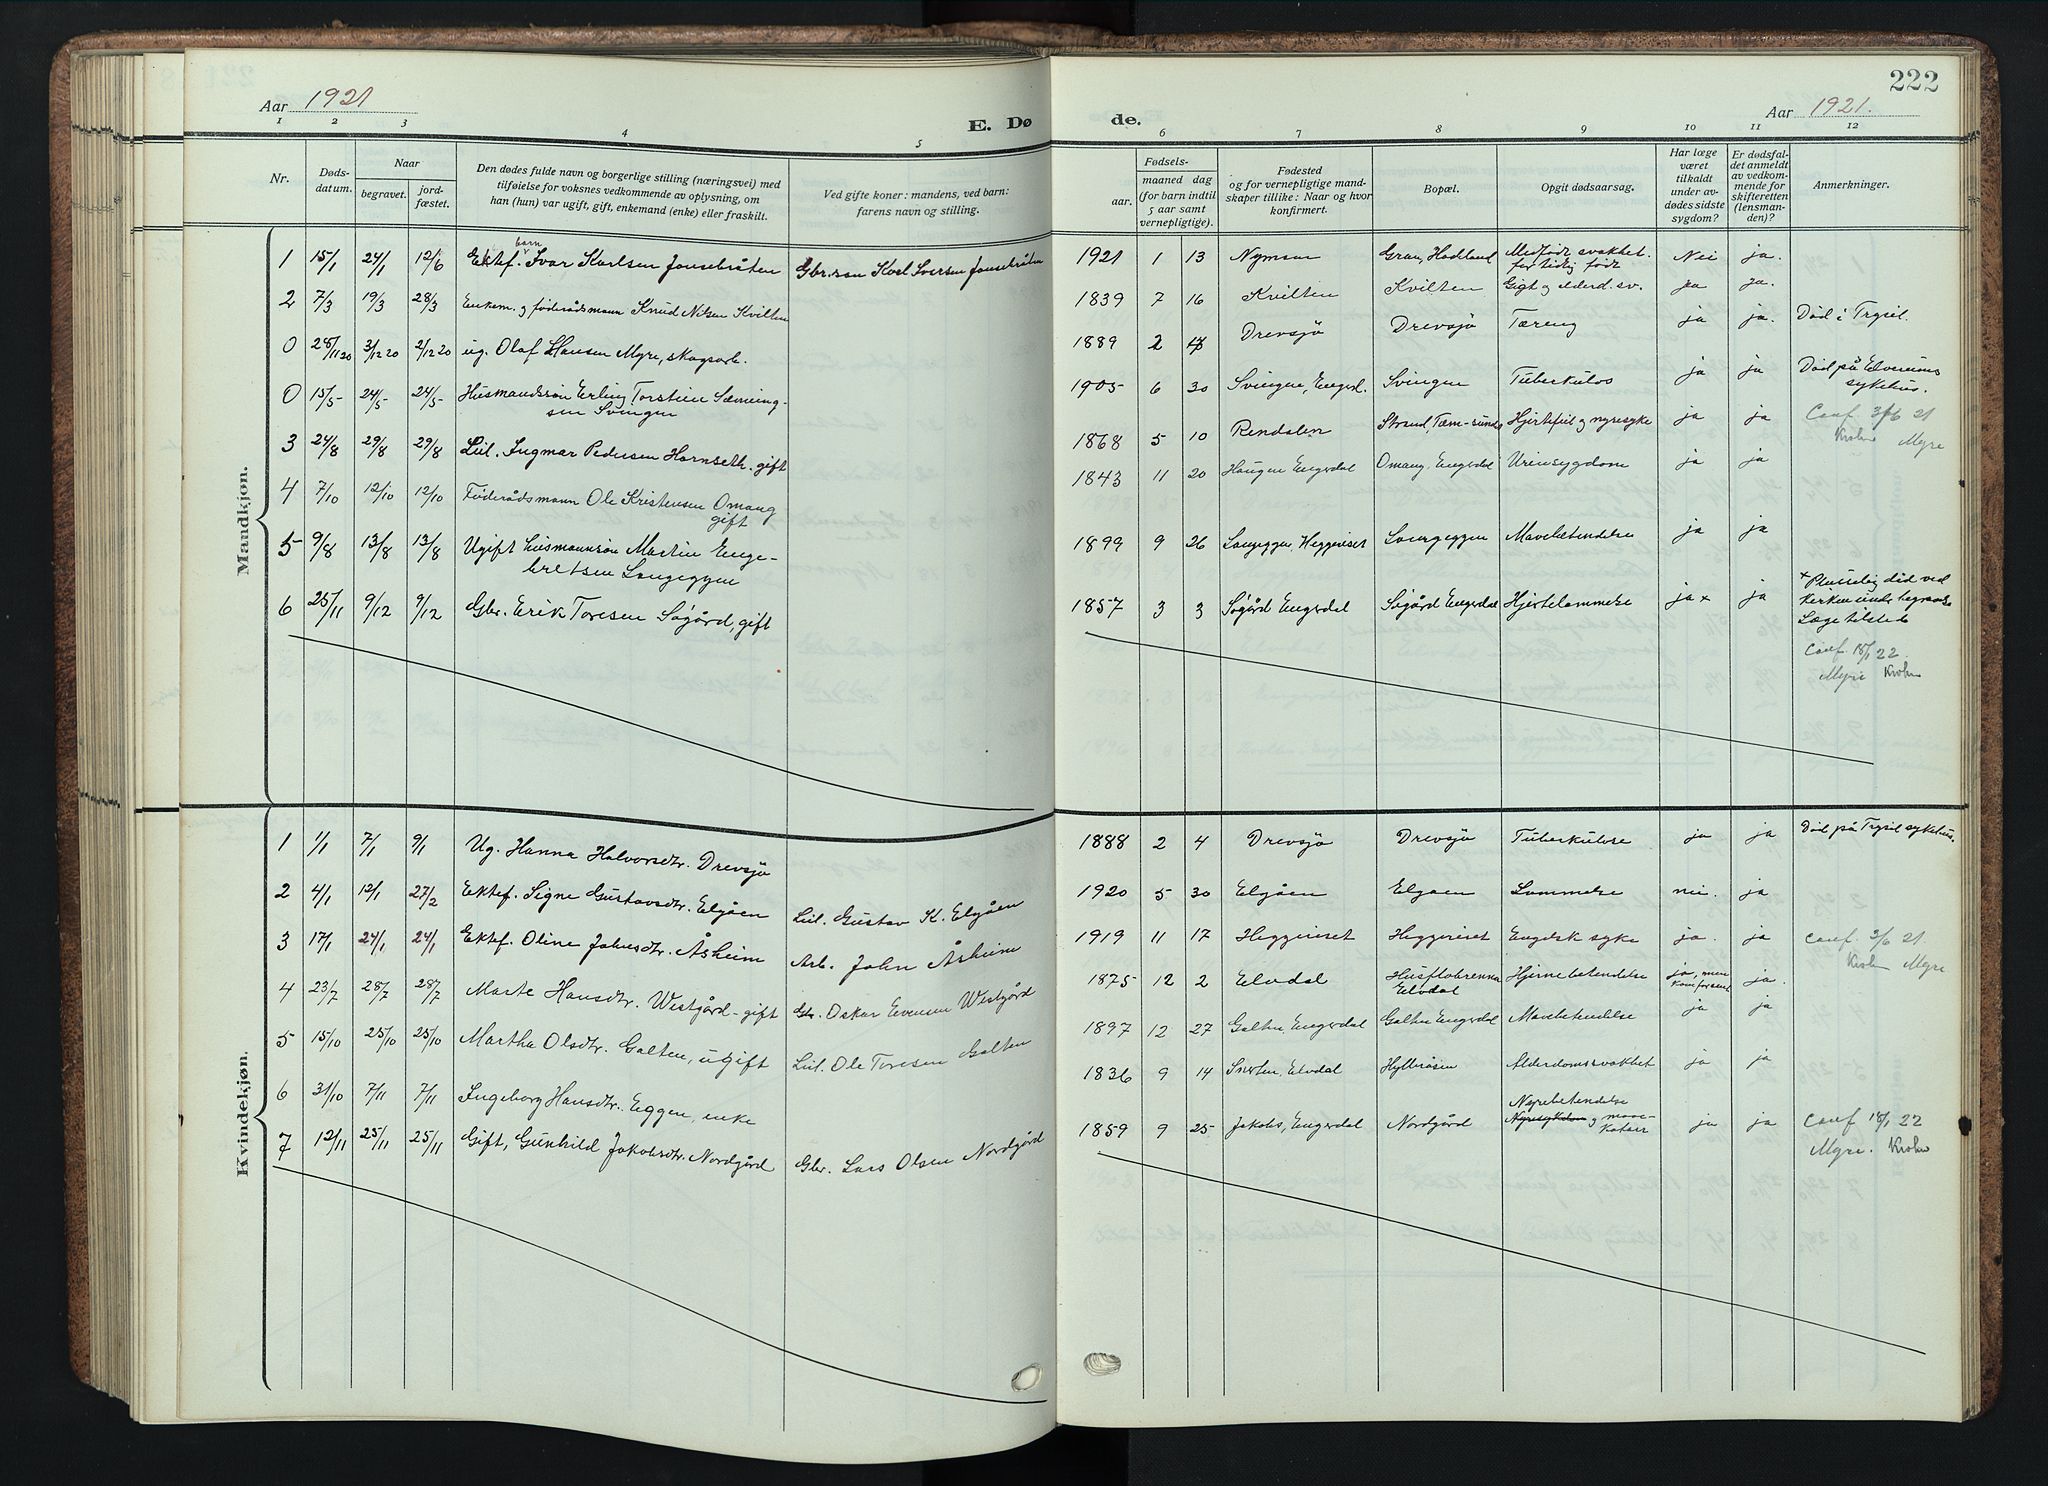 222
Aar 1921
E. Dø
de.
Aar 1921.
1 2 3 4 5 6 7 8 9 10 11 12
Nr.
Døds-
datum.
Naar
begravet.
jord-
fæstet.
Den dødes fulde navn og borgerlige stilling (næringsvei) med
tilføielse for voksnes vedkommende av oplysning, om
han (hun) var ugift, gift, enkemand (enke) eller fraskilt.
Ved gifte koner: mandens, ved barn:
farens navn og stilling.
Fødsels-
aar.
maaned dag
(for barn indtil
5 aar samt
vernepligtige).
Fødested
og for vernepligtige mand-
skaper tillike: Naar og hvor
konfirmert.
Bopæl.
Opgit dødsaarsag.
Har læge
været
tilkaldt
under av-
dødes sidste
sygdom?
Er dødsfal-
det anmeldt
av vedkom-
mende for
skifteretten
(lensman-
den)?
Anmerkninger.
Mandkjøn.
1 15/1 24/1 12/6 Ektef. barn Ivar Karlsen Jonsebråten Gbr.søn Karl Iversen Jonsebråten 1921 1 13 Nymoen Gran, Hadland Medfødt svakhet. Nei ja.
for tidig født
2 7/3 19/3 28/3 Enkem. og føderådsmann Knud Nilsen Kvilten 1839 7 16 Kvilten Kvilten Gigt og alderd. sv. ja ja.
0 28/11 20 3/12 20 2/12 20 ug. Olaf Hansen Myre, skogsarb. 1889 2 17 Drevsjø Drevsjø Tæring ja ja. Død i Trysil.
0 15/5 24/5 24/5 Husmandssøn Erling Torstein Sæming-
sen Svingen 1905 6 30 Svingen, Engerd. Svingen Tuberkulos ja ja Død på Elverums
sykehus.
3 24/8 29/8 29/8 Leil. Ingmar Pedersen Hornseth. gift 1868 5 10 Rendalen Strand, Hjertefeil og nyresyke ja ja Conf. 3/6 21
Krohn Myre
4 7/10 12/10 12/10 Føderådsmann Ole Kristensen Omang
gift 1843 11 20 Haugen Engerdal Omang, Engerdal Urinsygdom ja ja
5 9/8 13/8 13/8 Ugift husmannsøn Martin Enge-
bretsen Langeggen 1899 9 26 Langeggen, Heggeriset Langeggen Mavebetendelse ja ja
6 25/11 9/12 9/12 Gbr. Erik Toresen Søgård, gift 1857 3 3 Søgård Engerdal Søgård Engerdal Hjertelammelse ja x ja x Plusselig død ved
kirken under begravelse
Læge tilstede
Conf. 18/1 22.
Myre Krohn
Kvindekjøn.
1 1/1 7/1 9/1 Ug. Hanna Halvorsdtr. Drevsjø 1888 2 4 Drevsjø Drevsjø Tuberkulose ja ja Død på Trysil sykehus.
2 4/1 12/1 27/2 Ektef. Signe Gustavsdtr. Elgåen Leil. Gustav K. Elgåen 1920 5 30 Elgåen Elgaen Lammelse nei. ja
3 17/1 24/1 24/1 Ektef. Oline Johnsdtr. Åsheim Arb. John Åsheim 1919 11 17 Heggeriset Heggeriset Engelsk syke ja. ja Conf. 3/6 21.
Krohn Myre
4 23/7 28/7 28/7 Marte Hansdtr. Westgård - gift Gbr. Oskar Evensen Westgård 1875 12 2 Elvdal Husflobrenna
Elvdal Hjernebetendelse ja, men
kom for sent ja.
5 15/10 25/10 25/10 Martha Olsdtr. Galten, ugift Leil. Ole Toresen Galten 1897 12 27 Galten, Engerdal Galten Engerdal Mavebetendelse ja ja
6 31/10 7/11 7/11 Ingeborg Hansdtr. Eggen, enke 1836 9 14 Snerten, Elvdal Hylbråsen Alderdomssvakhet ja ja
7 12/11 25/11 25/11 Gift, Gunhild Jakobsdtr. Nordgård Gbr. Lars Olsen Nordgård 1859 9 25 Jakobs, Engerdal Nordgård Nyrebetendelse
Nyresykdom og mave-
katarr ja ja Conf 18/1 22
Myre. Krohn